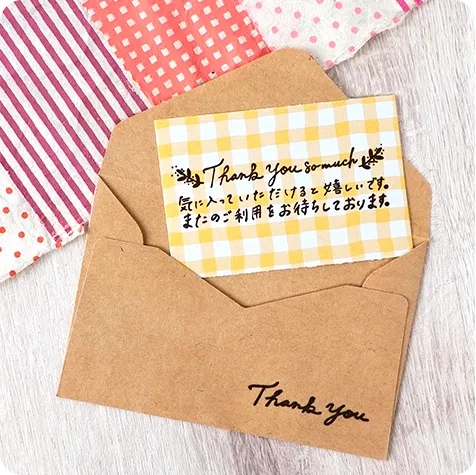 Thank You so much
気に入っていただけると嬉しいです。
またのご利用をお待ちしております。
Thank You